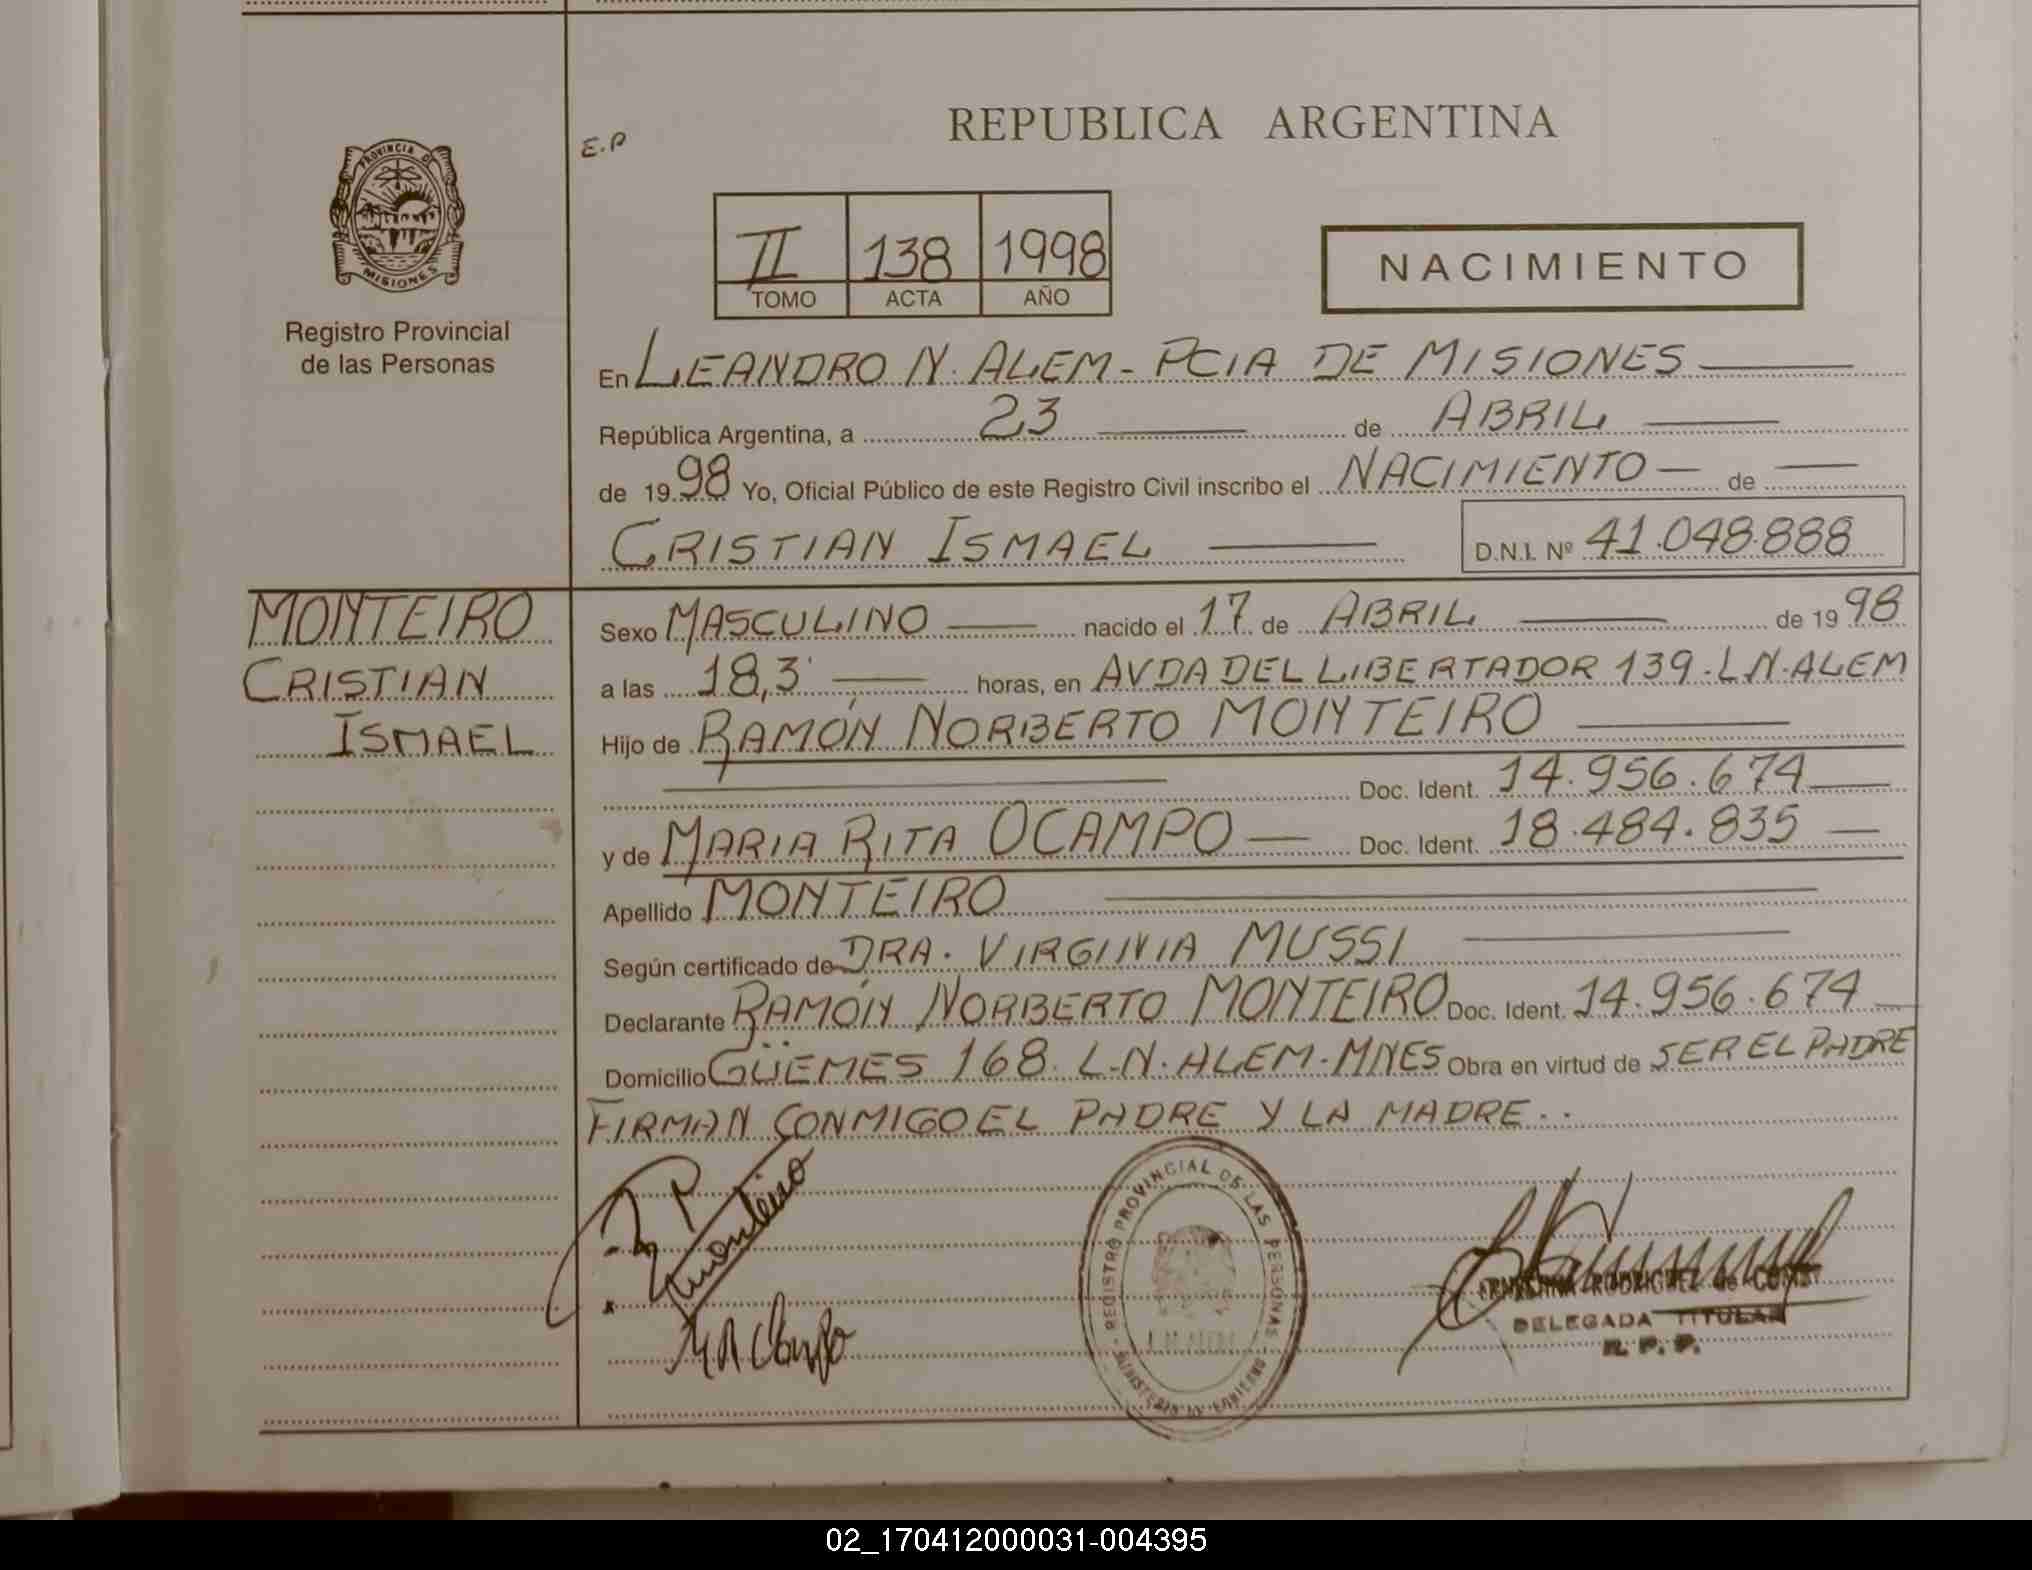 REPUBLICA ARGENTINA
E.P
PROVINCIA DE
MISIONES
Registro Provincial
de las Personas
II 138 1998
TOMO ACTA AÑO
NACIMIENTO
En LEANDRO N. ALEM - PCIA DE MISIONES
República Argentina, a 23 de ABRIL
de 1998 Yo, Oficial Público de este Registro Civil inscribo el NACIMIENTO de
CRISTIAN ISMAEL D.N.I. Nº 41.048.888
MONTEIRO
CRISTIAN
ISMAEL
Sexo MASCULINO nacido el 17 de ABRIL de 1998
a las 18,3 horas, en AVDA DEL LIBERTADOR 139.L.N.ALEM
Hijo de RAMÓN NORBERTO MONTEIRO
Doc. Ident. 14.956.674
y de MARIA RITA OCAMPO Doc. Ident. 18.484.835
Apellido MONTEIRO
Según certificado de DRA. VIRGINIA MUSSI
Declarante RAMÓN NORBERTO MONTEIRO Doc. Ident. 14.956.674
Domicilio GÜEMES 168. L.N.ALEM.MNES Obra en virtud de SER EL PADRE
FIRMAN CONMIGO EL PADRE Y LA MADRE..
Monteiro
M R Ocampo
REGISTRO PROVINCIAL DE LAS PERSONAS
MINISTERIO DE GOBIERNO
RODRIGUEZ de
DELEGADA TITULAR
R. P. P.
02_170412000031-004395